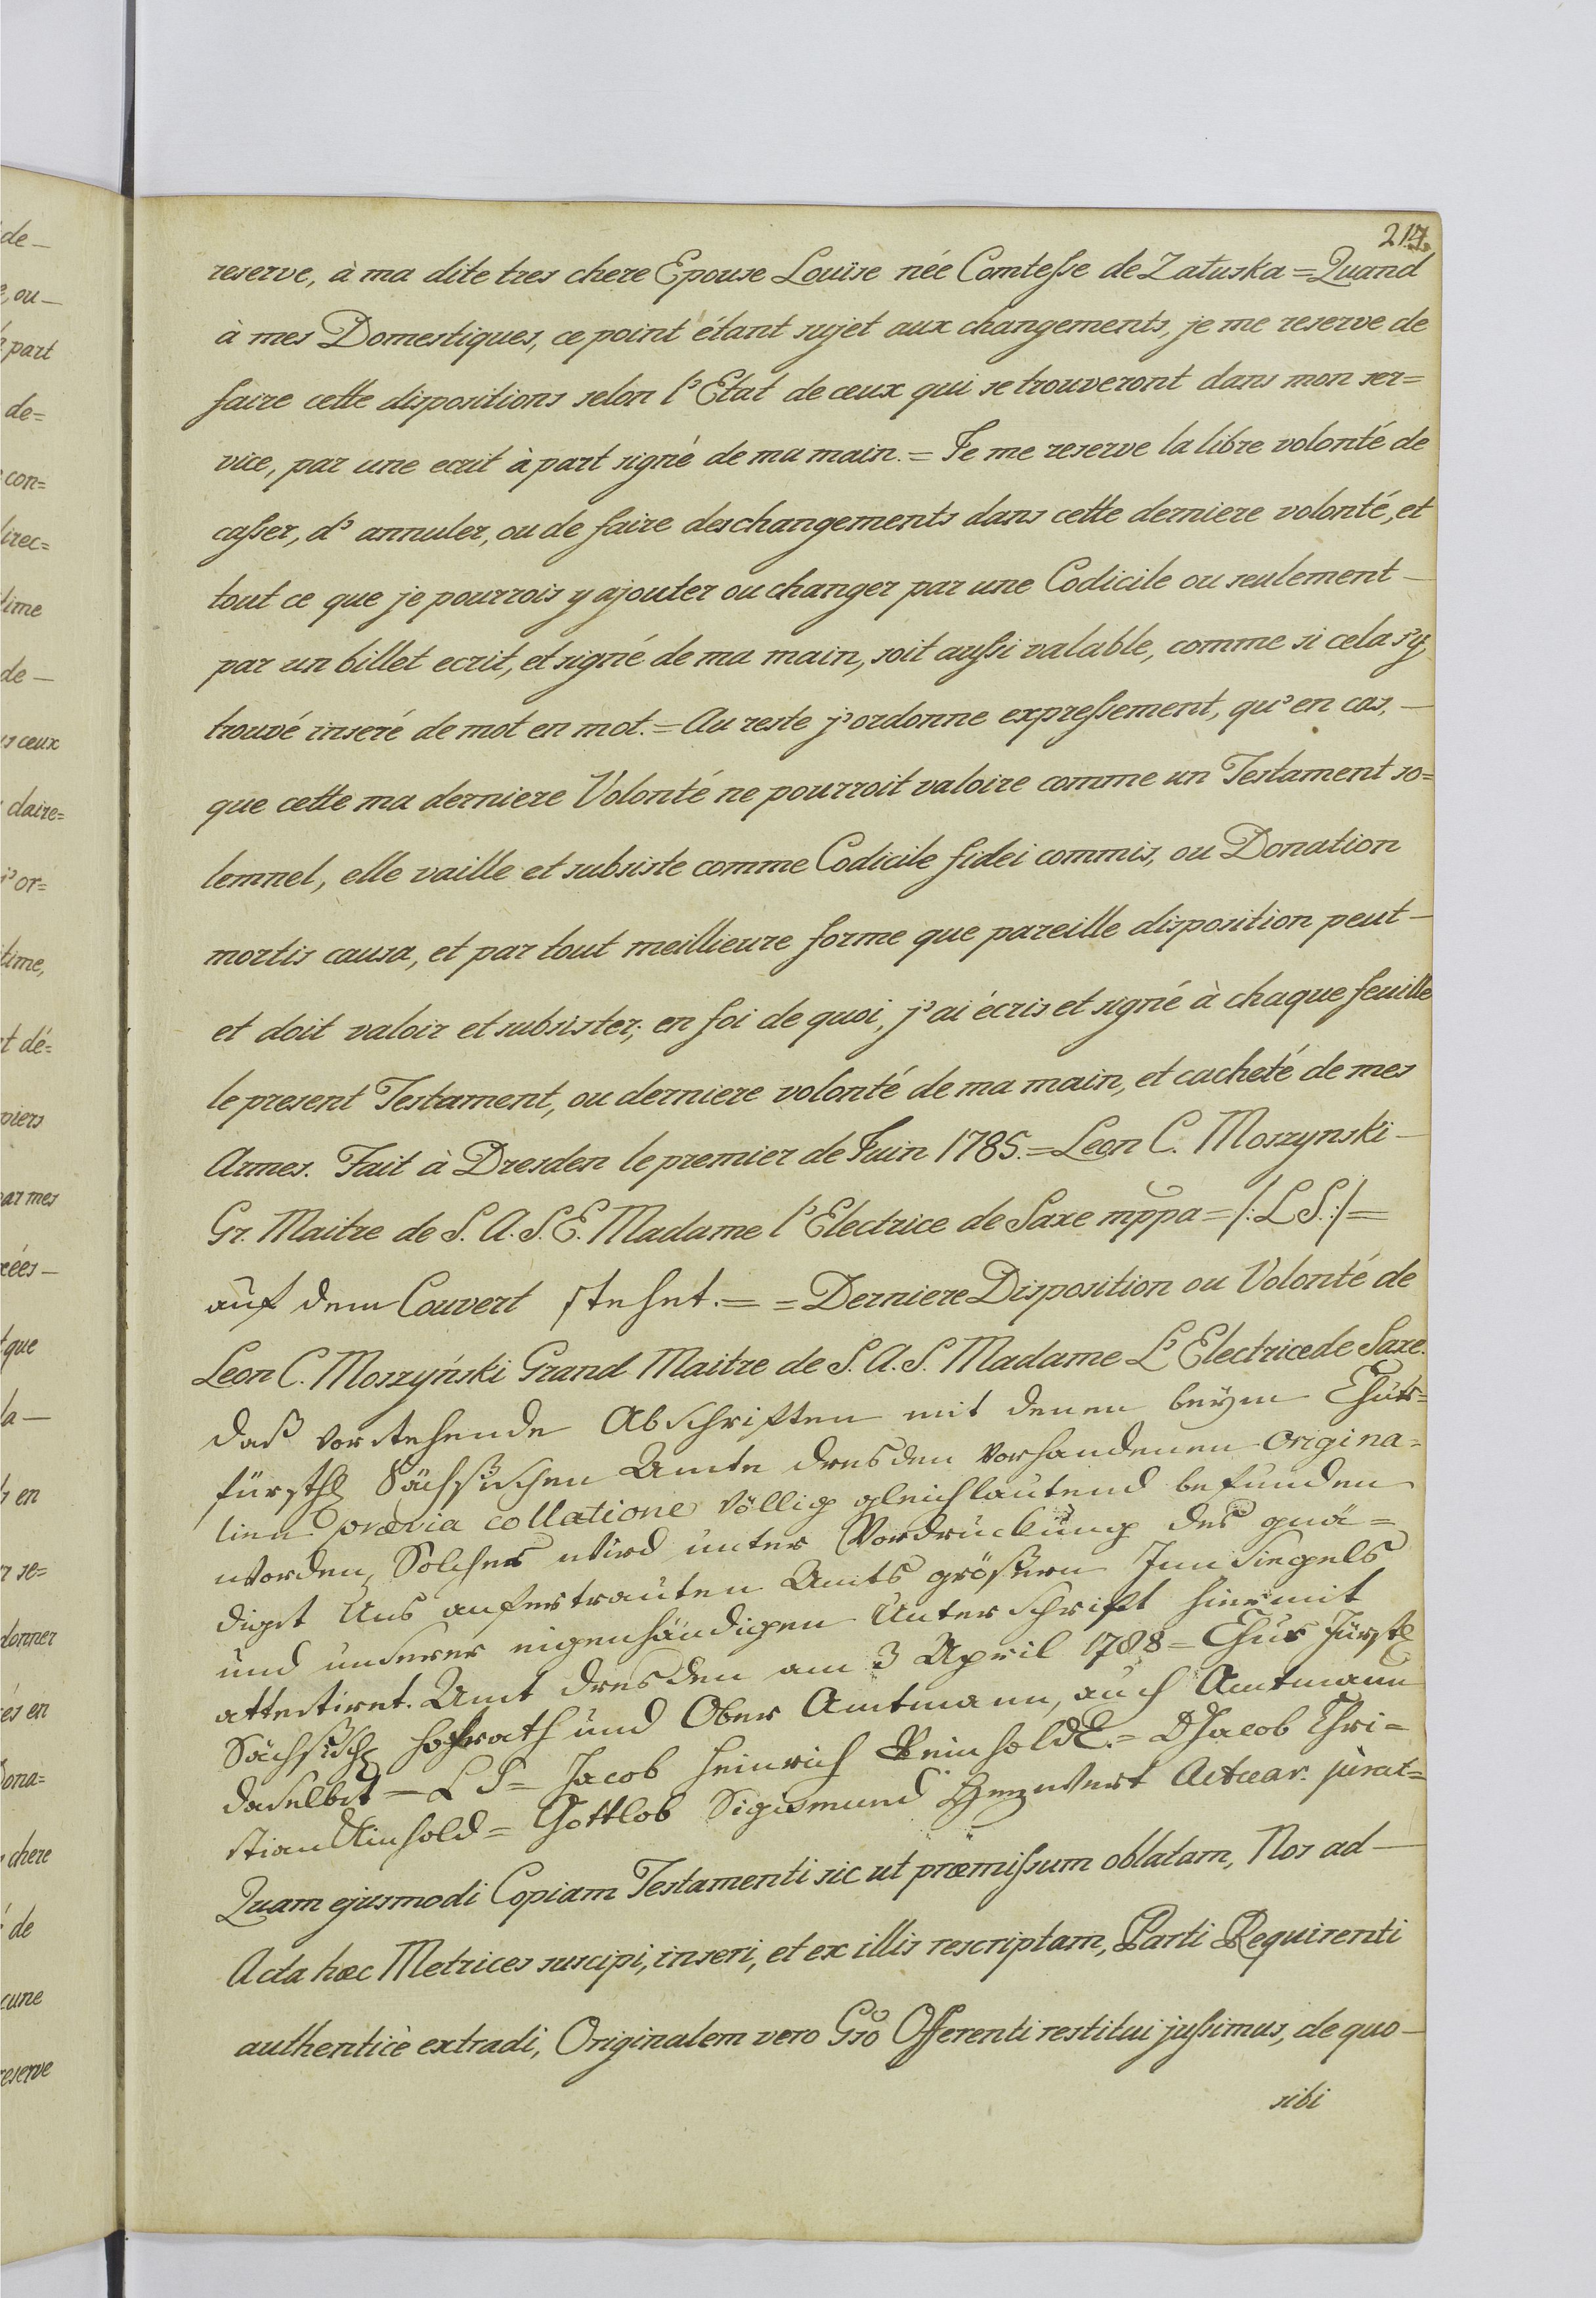 217.
reserve, à ma dite tres chere Epouse Louïse née Comtesse de Zatuska = Quand
à mes Domestiques, ce point étant sujet aux changements, je me reserve de
faire cette dispositions selon l'Etat de ceux qui se trouveront dans mon ser=
vice, par une ecrit à part signé de ma main. = Je me reserve la libre volonté de
casser, d'annuler, ou de faire des changements dans cette derniere volonté, et
tout ce que je pourrois y ajouter ou changer par une Codicile ou seulement —
par un billet ecrit, et signé de ma main, soit aussi valable, comme si cela s'y
trouvé inseré de mot en mot. = Au reste j'ordonne expressement, qu'en cas, —
que cette ma derniere Volonté ne pourroit valoire comme un Testament so=
lemnel, elle vaille et subsiste comme Codicile fidei commis, ou Donation
mortis causa, et par tout meillieure forme que pareille disposition peut —
et doit valoir et subsister; en foi de quoi, j'ai écris et signé à chaque feuille
le present Testament, ou derniere volonté de ma main, et cacheté de mes
Armes. Fait à Dresden le premier de Juin 1785. = Leon C. Moszynski —
Gr. Maitre de S. A. S. E. Madame l'Electrice de Saxe mppa = /: L S. :/ =
auf dem Couvert stehet. = = Derniere Disposition ou Volonté de
Leon C. Moszyński Grand Maitre de S. A. S. Madame L'Electrice de Saxe.
Daß vorstehende Abschriften mit denen beym Chur=
fürstl Sächsischen Amte Dresden vorhandenen Origina=
lien prævia collatione völlig gleichlautend befunden
worden, Solches wird unter Vordruckung des gnä=
digst Uns anvertrauten Amts größern Inn Siegels
und unserer eigenhändigen Unterschrift hiermit
attestiret. Amt Dresden am 3 April 1788 = Chur Fürstl
Sächsisch Hofrath und Ober Amtmann, auch Amtmann
daselbst = L S = Jacob Heinrich Reinhold. = Jacob Chri=
stian Reinhold = Gottlob Sigismund Actuar. jurat =
Quam ejusmodi Copiam Testamenti sic ut præmissum oblatam, Nos ad —
Acta hæc Metrices suscipi, inseri, et ex illis rescriptam, Parti Requirenti
authenticè extradi, Originalem vero Gso Offerenti restitui jussimus, de quo —
sibi
de —
e, ou —
part
de=
con=
direc=
time
de —
ceux
claire=
j'or=
time,
t dé=
par mes
que
la —
en
se=
donner
és en
Dona=
chere
de
cune
reserve